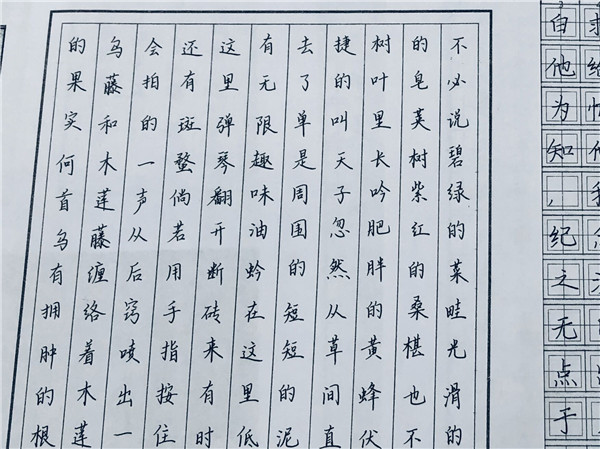 不必说碧绿的菜畦光滑的
的皂荚树紫红的桑椹也不
树叶里长吟肥胖的黄蜂伏
捷的叫天子忽然从草间直
去了单是周围的短短的泥
有无限趣味油蛉在这里低
这里弹琴翻开断砖来有时
还有斑蝥倘若用手指按住
会拍的一声从后窍喷出一
乌藤和木莲藤缠络着木莲
的果实何首乌有拥肿的根
他为知，纪之无点于